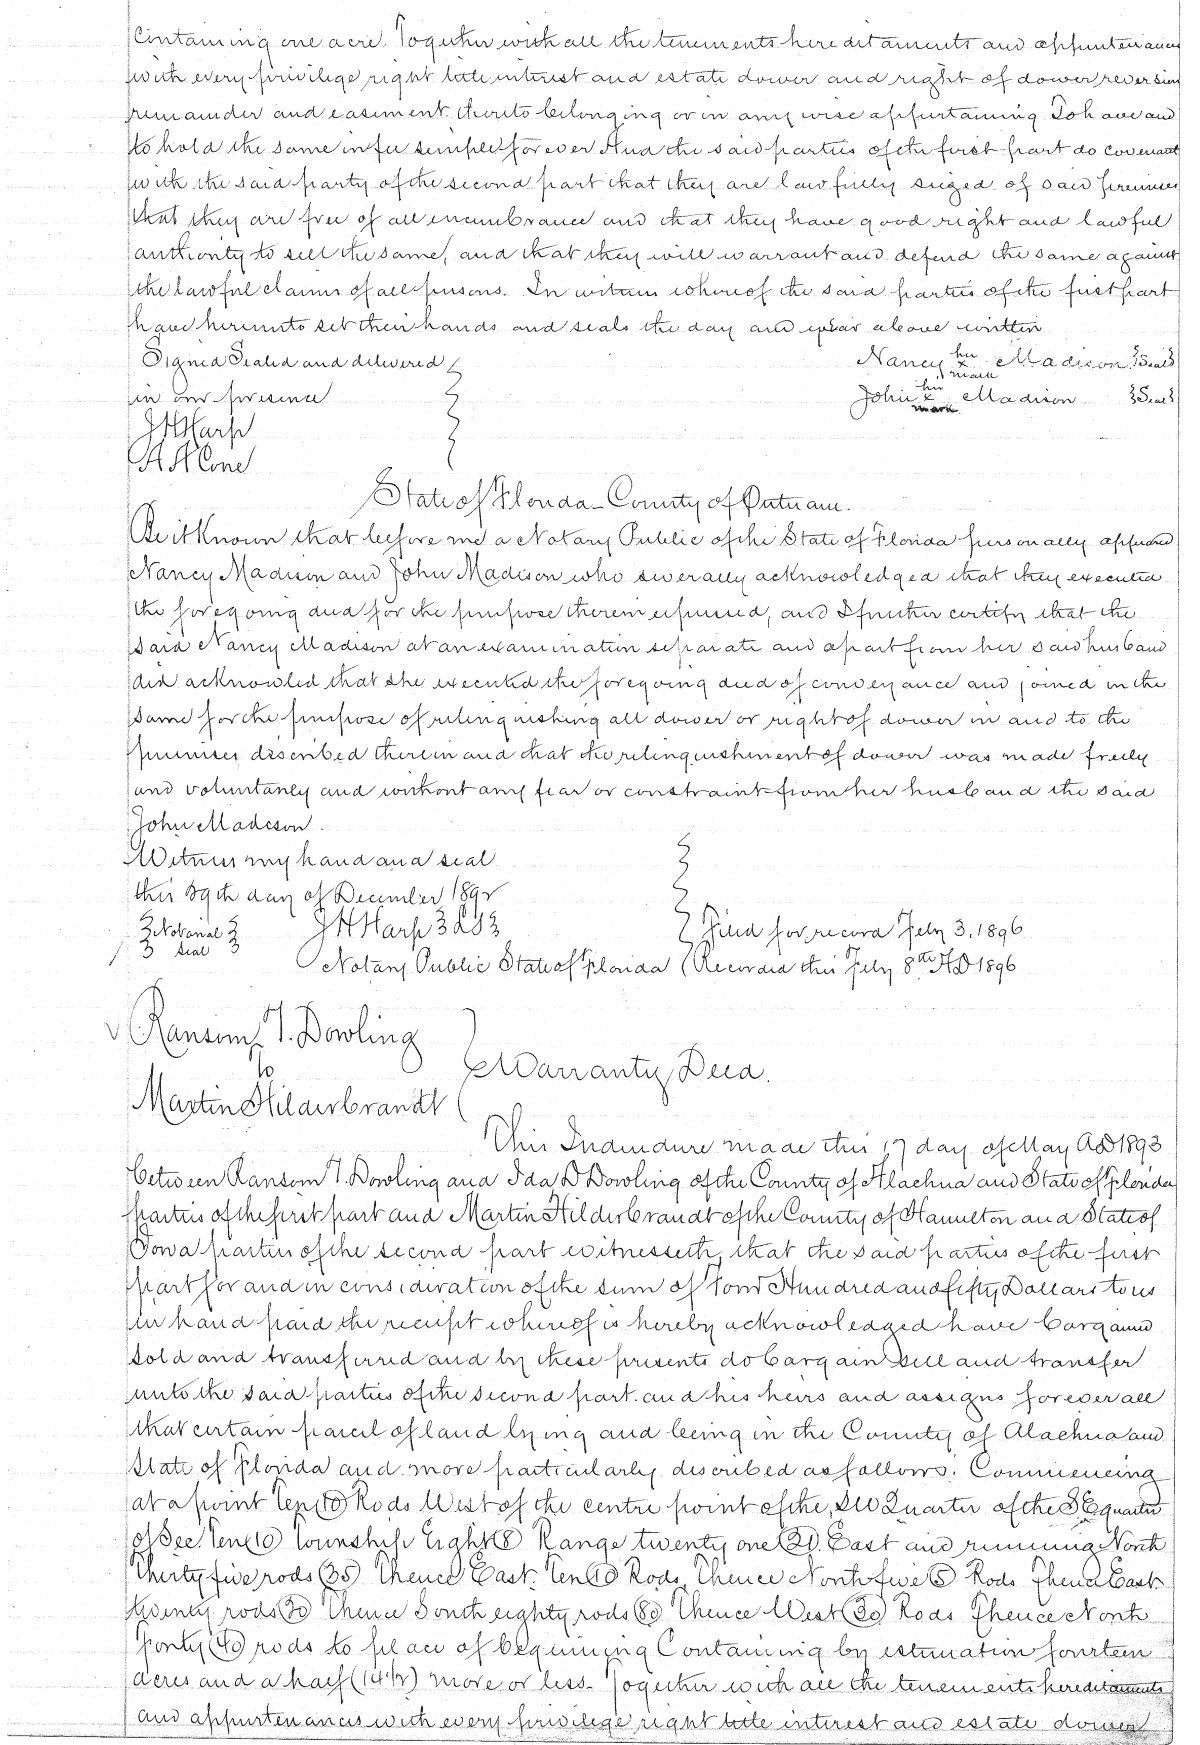 Containing one acre Together with all the tenements hereditaments and appurtenances
with every privilege right title interest and estate dower and right of dower reversion
remainder and easement thereto belonging or in any wise appertaining To have and
to hold the same in fee simple forever And the said parties of the first part do covenant
with the said party of the second part that they are lawfully seized of said premises
that they are free of all encumbrance and that they have good right and lawful
authority to sell the same, and that they will warrant and defend the same against
the lawful claims of all persons. In witness whereof the said parties of the first part
have hereunto set their hands and seals the day and year above written
Signed Sealed and delivered Nancy her x mark Madison {Seal}
in our presence John his x mark Madison {Seal}
J H Harp
A A Cone
State of Florida - County of Putnam.
Be it Known that before me a Notary Public of the State of Florida personally appeared
Nancy Madison and John Madison who severally acknowledged that they executed
the foregoing deed for the purpose therein expressed, and I further certify that the
said Nancy Madison at an examination separate and apart from her said husband
did acknowled that she executed the foregoing deed of conveyance and joined in the
same for the purpose of relinquishing all dower or right of dower in and to the
premises described therein and that the relinquishment of dower was made freely
and voluntarily and without any fear or constraint from her husband the said
John Madison.
Witness my hand and seal
this 29th day of December 1892
{Notarial seal} J H Harp {LS} Filed for record Feby 3, 1896
Notary Public State of Florida Recorded this Feby 8th AD 1896
Ransom T. Dowling
To
Warranty Deed.
Martin Hilderbrandt
This Indendure made this 17 day of May AD 1893
between Ransom T. Dowling and Ida D Dowling of the County of Alachua and State of Florida
parties of the first part and Martin Hilderbrandt of the County of Hamilton and State of
Iowa parties of the second part witnesseth, that the said parties of the first
part for and in consideration of the sum of Four Hundred and fifty Dollars to us
in hand paid the receipt whereof is hereby acknowledged have bargained
sold and transferred and by these presents do bargain sell and transfer
unto the said parties of the second part and his heirs and assigns forever all
that certain parcel of land lying and being in the County of Alachua and
State of Florida and more particularly described as follows: Commencing
at a point Ten (10) Rods West of the centre point of the SW Quarter of the SE quarter
of Sec. Ten (10) Township Eight (8) Range twenty one (21) East and running North
Thirty five rods (35) Thence East Ten (10) Rods, Thence North five (5) Rods Thence East
twenty rods (20) Thence South eighty rods (80) Thence West (30) Rods Thence North
Forty (40) rods to place of beginning Containing by estimation fourteen
acres and a half (14 1/2) more or less. Together with all the tenements hereditaments
and appurtenances with every privilege right title interest and estate dower